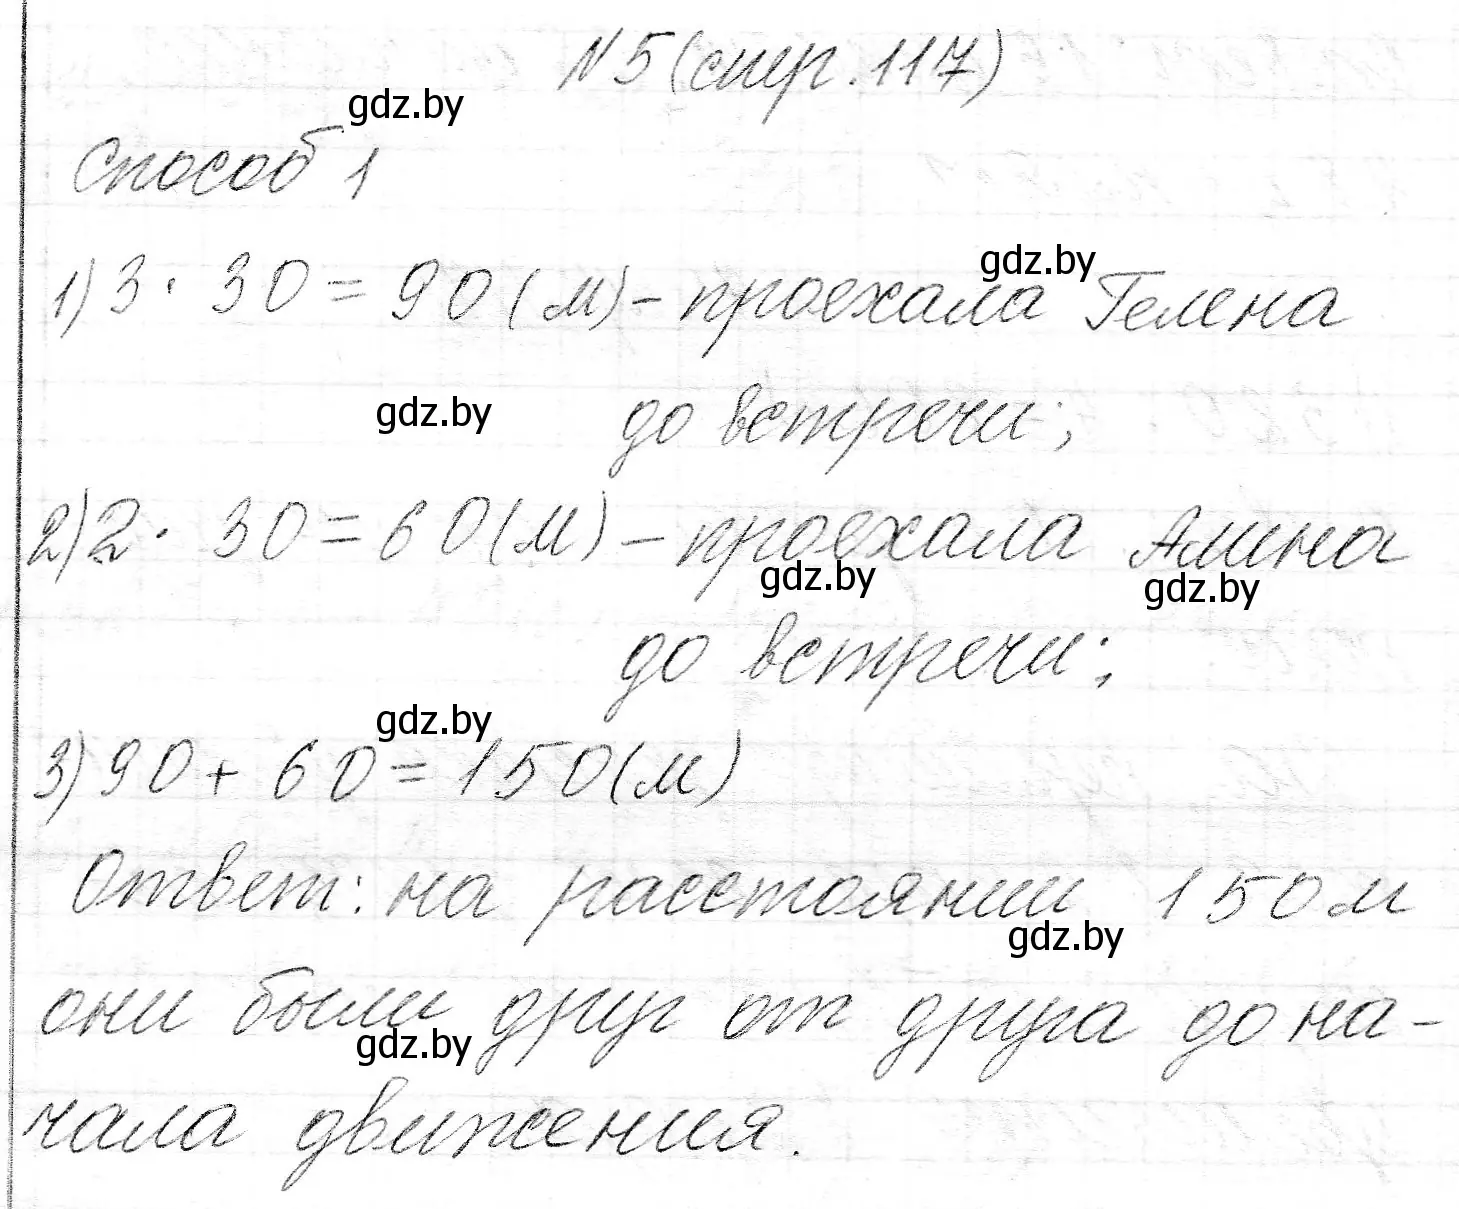 N 5 (стр. 117)
gdz.by
Способ 1
gdz.by
1) 3 · 30 = 90 (м) – проехала Гелена
gdz.by
до встречи;
2) 2 · 30 = 60 (м) – проехала Алина
gdz.by gdz.by
до встречи;
gdz.by
3) 90 + 60 = 150 (м)
Ответ: на расстоянии 150 м
gdz.by
они были друг от друга до на-
gdz.by
чала движения.